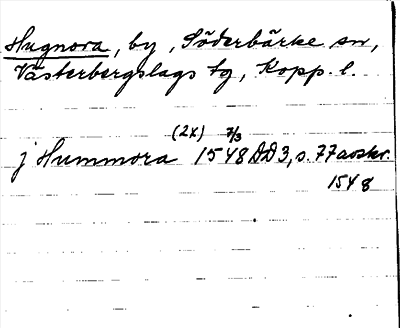 Hugnora, by, Söderbärke sn,
Västerbergslags tg, Kopp. l.
(2x) 7/3
j Hummora 1548 DD3, s. 77 avskr.
1548